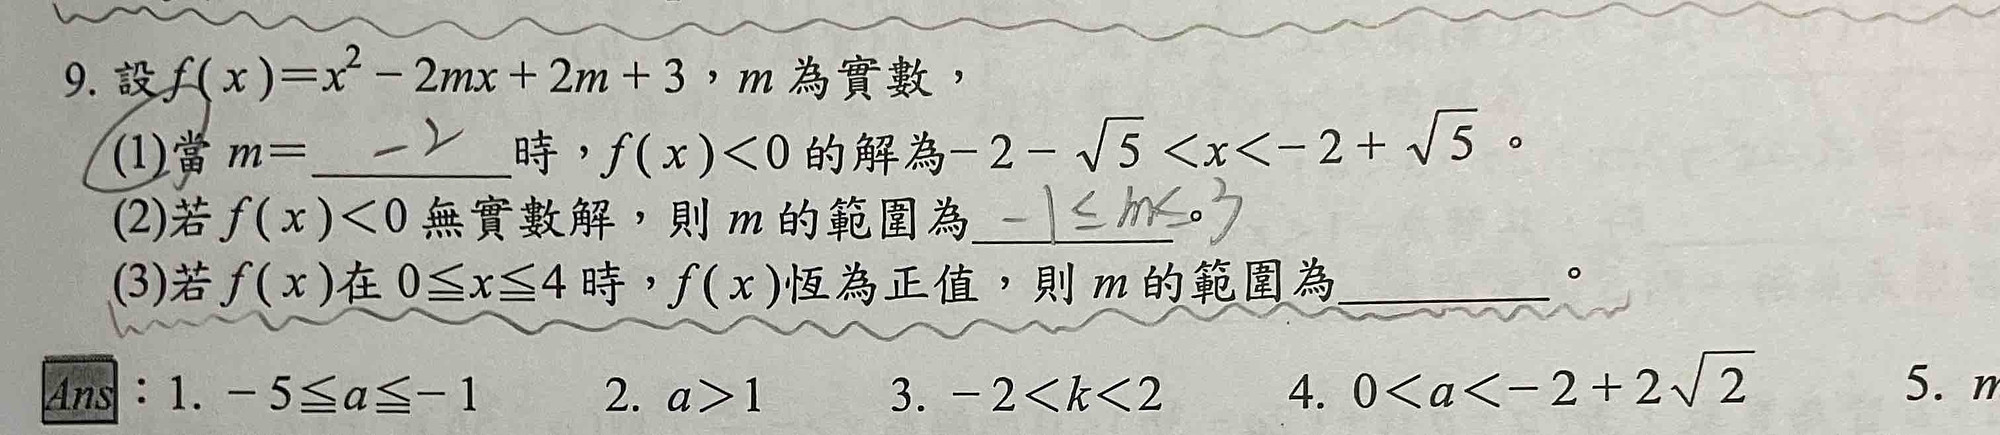 9. 設 f(x)=x²-2mx+2m+3，m 為實數，
(1)當 m= -2 時，f(x)<0 的解為-2-√5<x<-2+√5。
(2)若 f(x)<0 無實數解，則 m 的範圍為 -1≤m≤3。
(3)若 f(x)在 0≦x≦4 時，f(x)恆為正值，則 m 的範圍為______。
Ans：1. -5≦a≦-1 2. a>1 3. -2<k<2 4. 0<a<-2+2√2 5. m